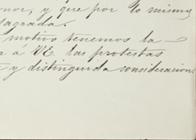 nor, y que por lo mismo
sagrada.
motivo tenemos la
r á VE. las protestas
y distinguida consideracion